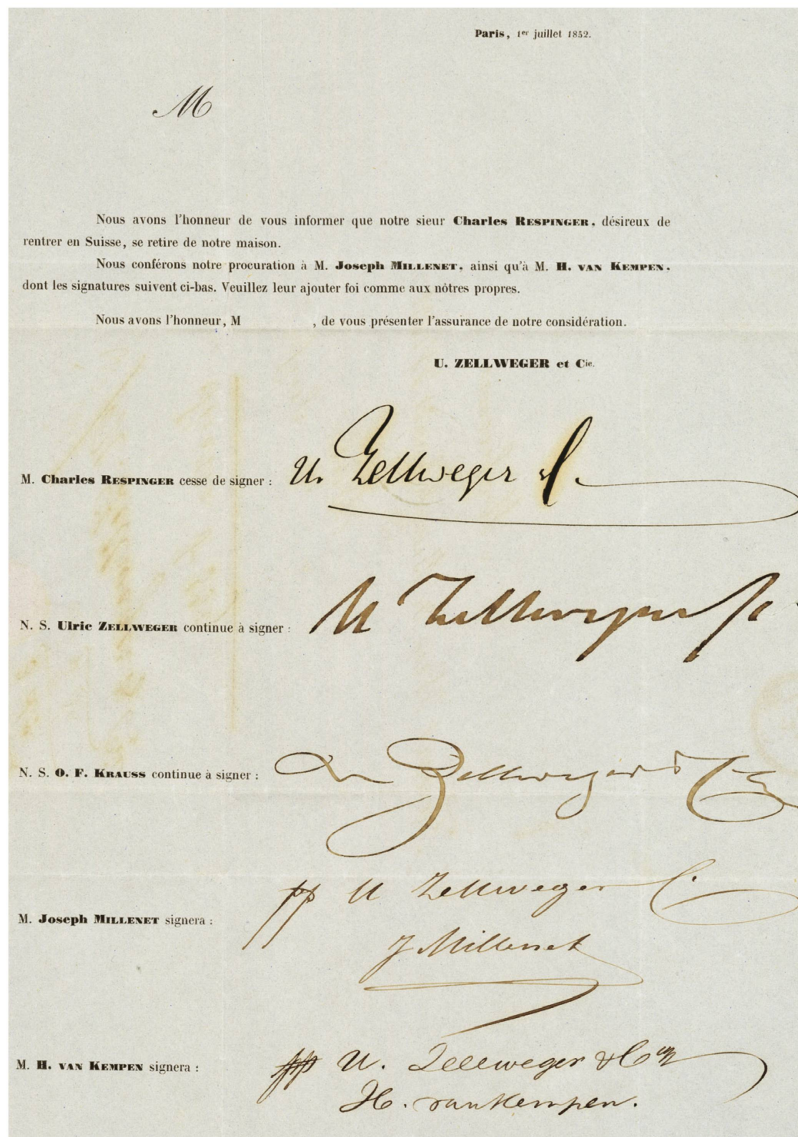 Paris, 1er juillet 1852.
M
Nous avons l'honneur de vous informer que notre sieur Charles RESPINGER, désireux de
rentrer en Suisse, se retire de notre maison.
Nous conférons notre procuration à M. Joseph MILLENET, ainsi qu'à M. H. VAN KEMPEN,
dont les signatures suivent ci-bas. Veuillez leur ajouter foi comme aux nôtres propres.
Nous avons l'honneur, M , de vous présenter l'assurance de notre considération.
U. ZELLWEGER et Cie.
M. Charles RESPINGER cesse de signer : U. Zellweger
N. S. Ulric ZELLWEGER continue à signer : U Zellweger
N. S. O. F. KRAUSS continue à signer : Zellweger
M. Joseph MILLENET signera : pp U Zellweger
J Millenet
M. H. VAN KEMPEN signera : pp U. Zellweger & Co
H. van Kempen.